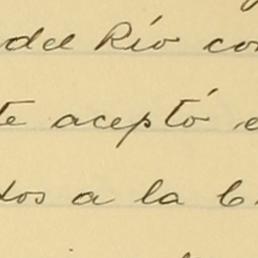 del Río co
te aceptó e
dos a la